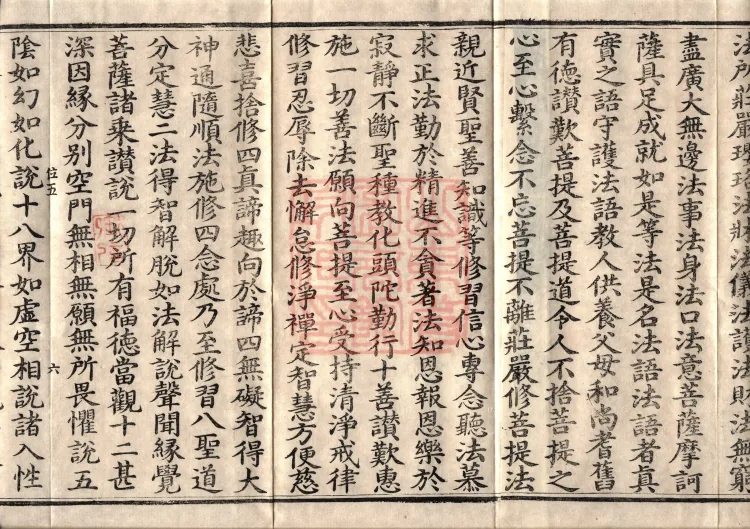 法所莊嚴瓔珞法莊法儀法護法財法無窮
盡廣大無邊法事法身法口法意菩薩摩訶
薩具足成就如是等法是名法語法語者真
實之語守護法語教人供養父母和尚耆舊
有德讚歎菩提及菩提道令人不捨菩提之
心至心繫念不忘菩提不離莊嚴修菩提法
親近賢聖善知識等修習信心專念聽法慕
求正法勤於精進不貪著法知恩報恩樂於
寂靜不斷聖種教化頭陀勤行十善讚歎惠
施一切善法願向菩提至心受持清淨戒律
修習忍辱除去懈怠修淨禪定智慧方便慈
悲喜捨修四真諦趣向於諦四無礙智得大
神通隨順法施修四念處乃至修習八聖道
分定慧二法得智解脫如法解說聲聞緣覺
菩薩諸乘讚說一切所有福德當觀十二甚
深因緣分別空門無相無願無所畏懼說五
位五 六
陰如幻如化說十八界如虛空相說諸入性